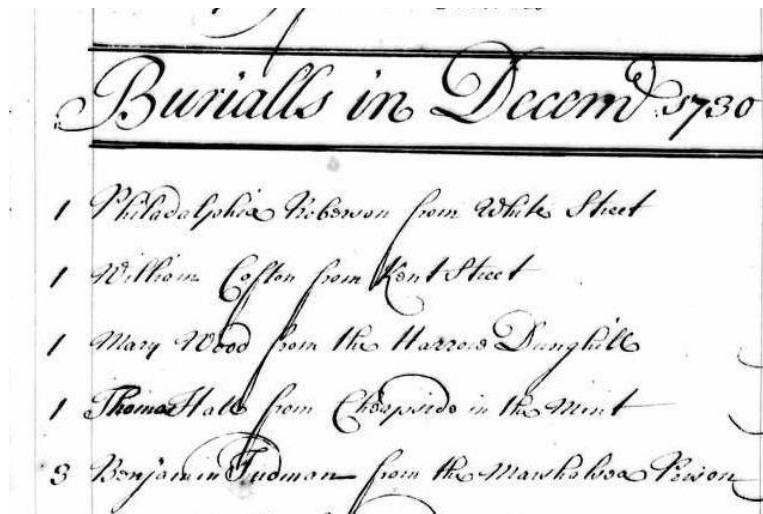 Burialls in Decemr 1730
1 Philadelphia Roberson from White Street
1 William Coston from Kent Street
1 Mary Wood from the Harrow Dunghill
1 Thomas Hale from Cheapside in the Mint
3 Benjamin Tudman from the Marshalsea Prison